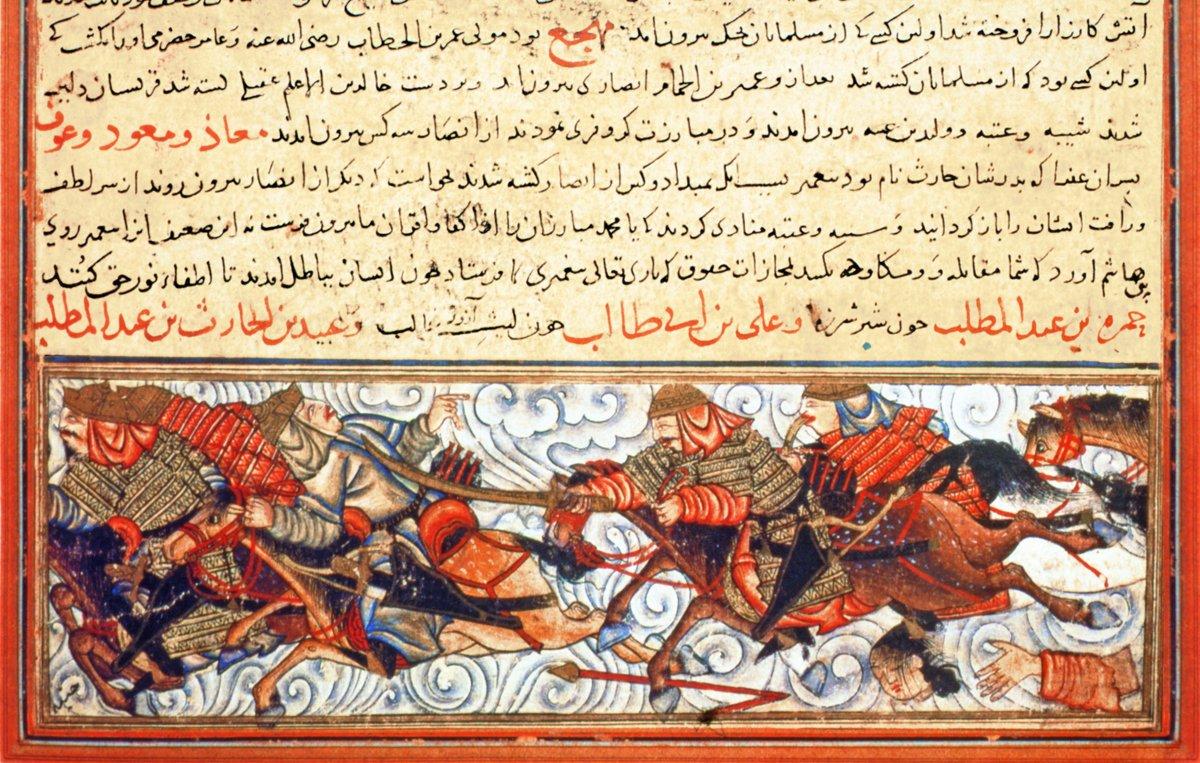 آتش کارزار افروخته شد اولین کسی که از مسلمانان بجنگ بیرون آمد مهجع بود مولی عمر بن الخطاب رضی الله عنه و عامر حضرمی او را بکشت که
اولین کسی بود که از مسلمانان کشته شد بعد از و عمیر بن الحمام انصاری بیرون آمد و بر دست خالد بن الاعلم عقیلی کشته شد قریشان دلیر
شدند شیبه و عتبه و ولید بن عتبه بیرون آمدند و در مبارزت کر و فری نمودند از انصار سه کس بیرون آمدند معاذ و معود و عوف
پسران عفرا که پدرشان حارث نام بود از انصار کشته شدند نخواست که دیگر از انصار بیرون روند از سر لطف
و رأفت ایشان را باز گردانید و شیبه و عتبه منادی کردند که یا محمد مبارزان را اکفا و اقران ما بیرون فرست نه این ضعیف روی
بنی هاشم آورد که شما مقابله و مکاوحه بکنید بمجازات حقوق که باری تعالی پیغمبری فرستاد چون ایشان بباطل آمدند تا اطفاء نور حق کنند
حمزه بن عبد المطلب چون شیر شرزه و علی بن ابی طالب چون لیث غالب و عبید بن الحارث بن عبد المطلب